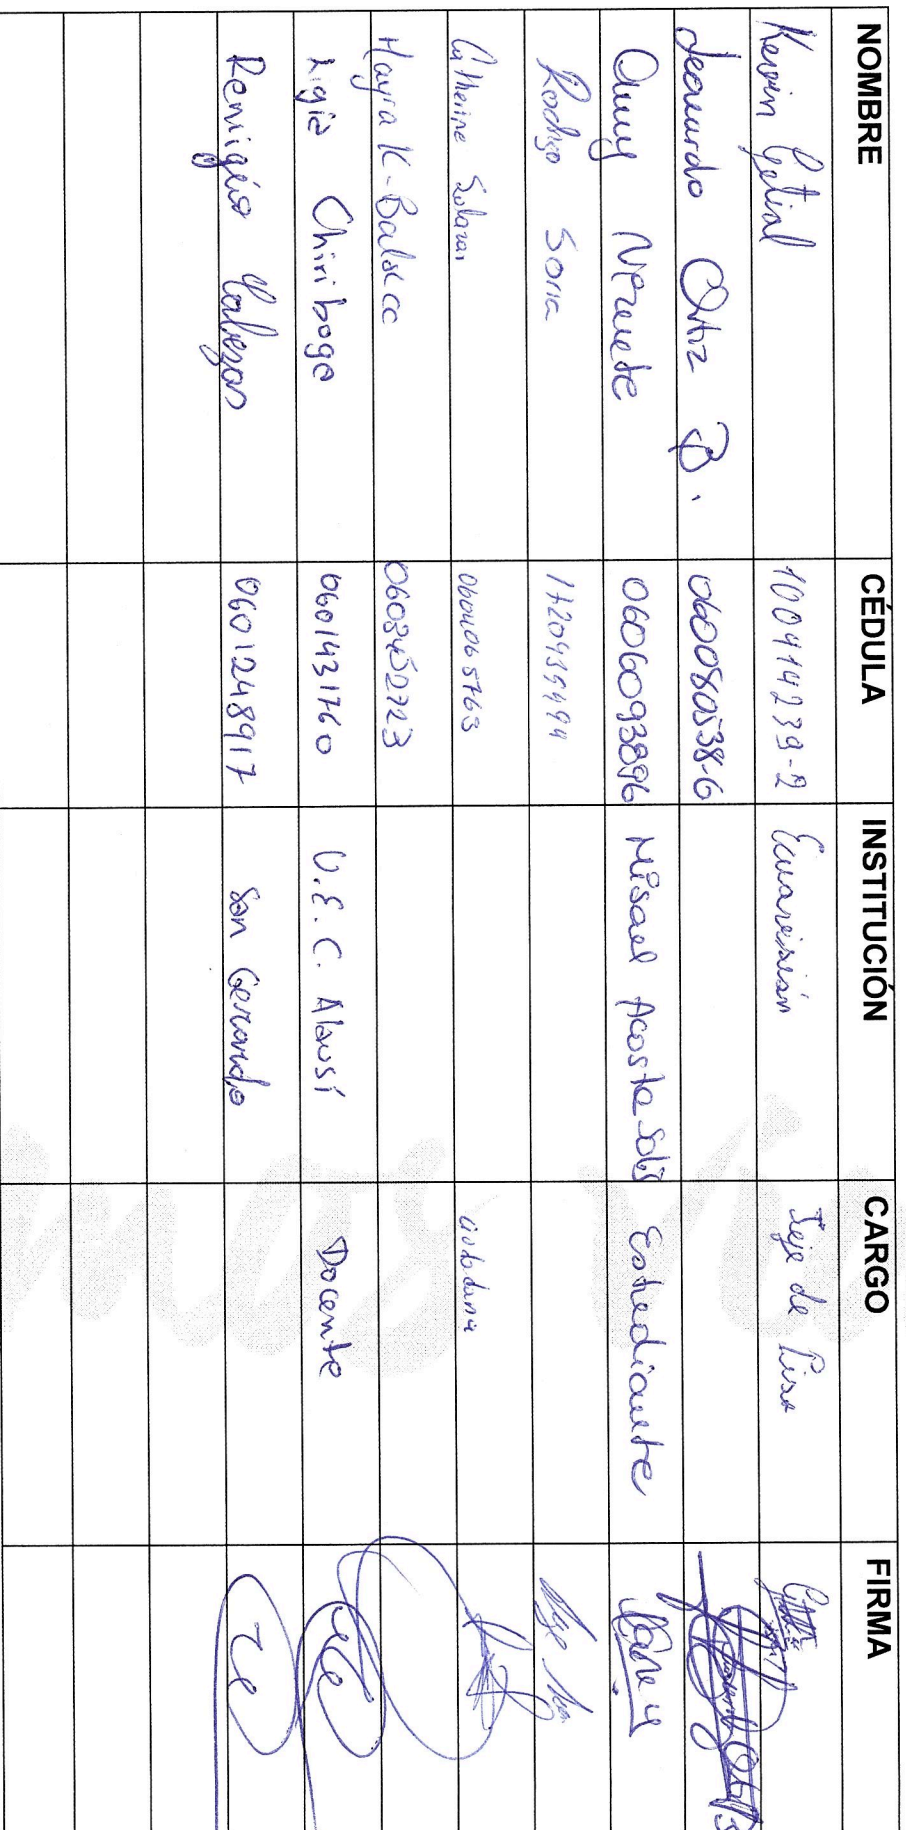 NOMBRE CÉDULA INSTITUCIÓN CARGO FIRMA
Kevin Getial 100414239-2 Ecuavisión Jefe de Piso
Leonardo Ortiz B. 060080538-6
Anny Negrete 0606093896 Misael Acosta Solís Estudiante
Rodrigo Soria
Catherine Salazar 0604065763 ciudadana
Mayra K. Baldeca
Ligia Chiriboga 0601431760 U.E.C. Alausí Docente
Remigio Cabezas 0601248917 San Gerardo
mos vis